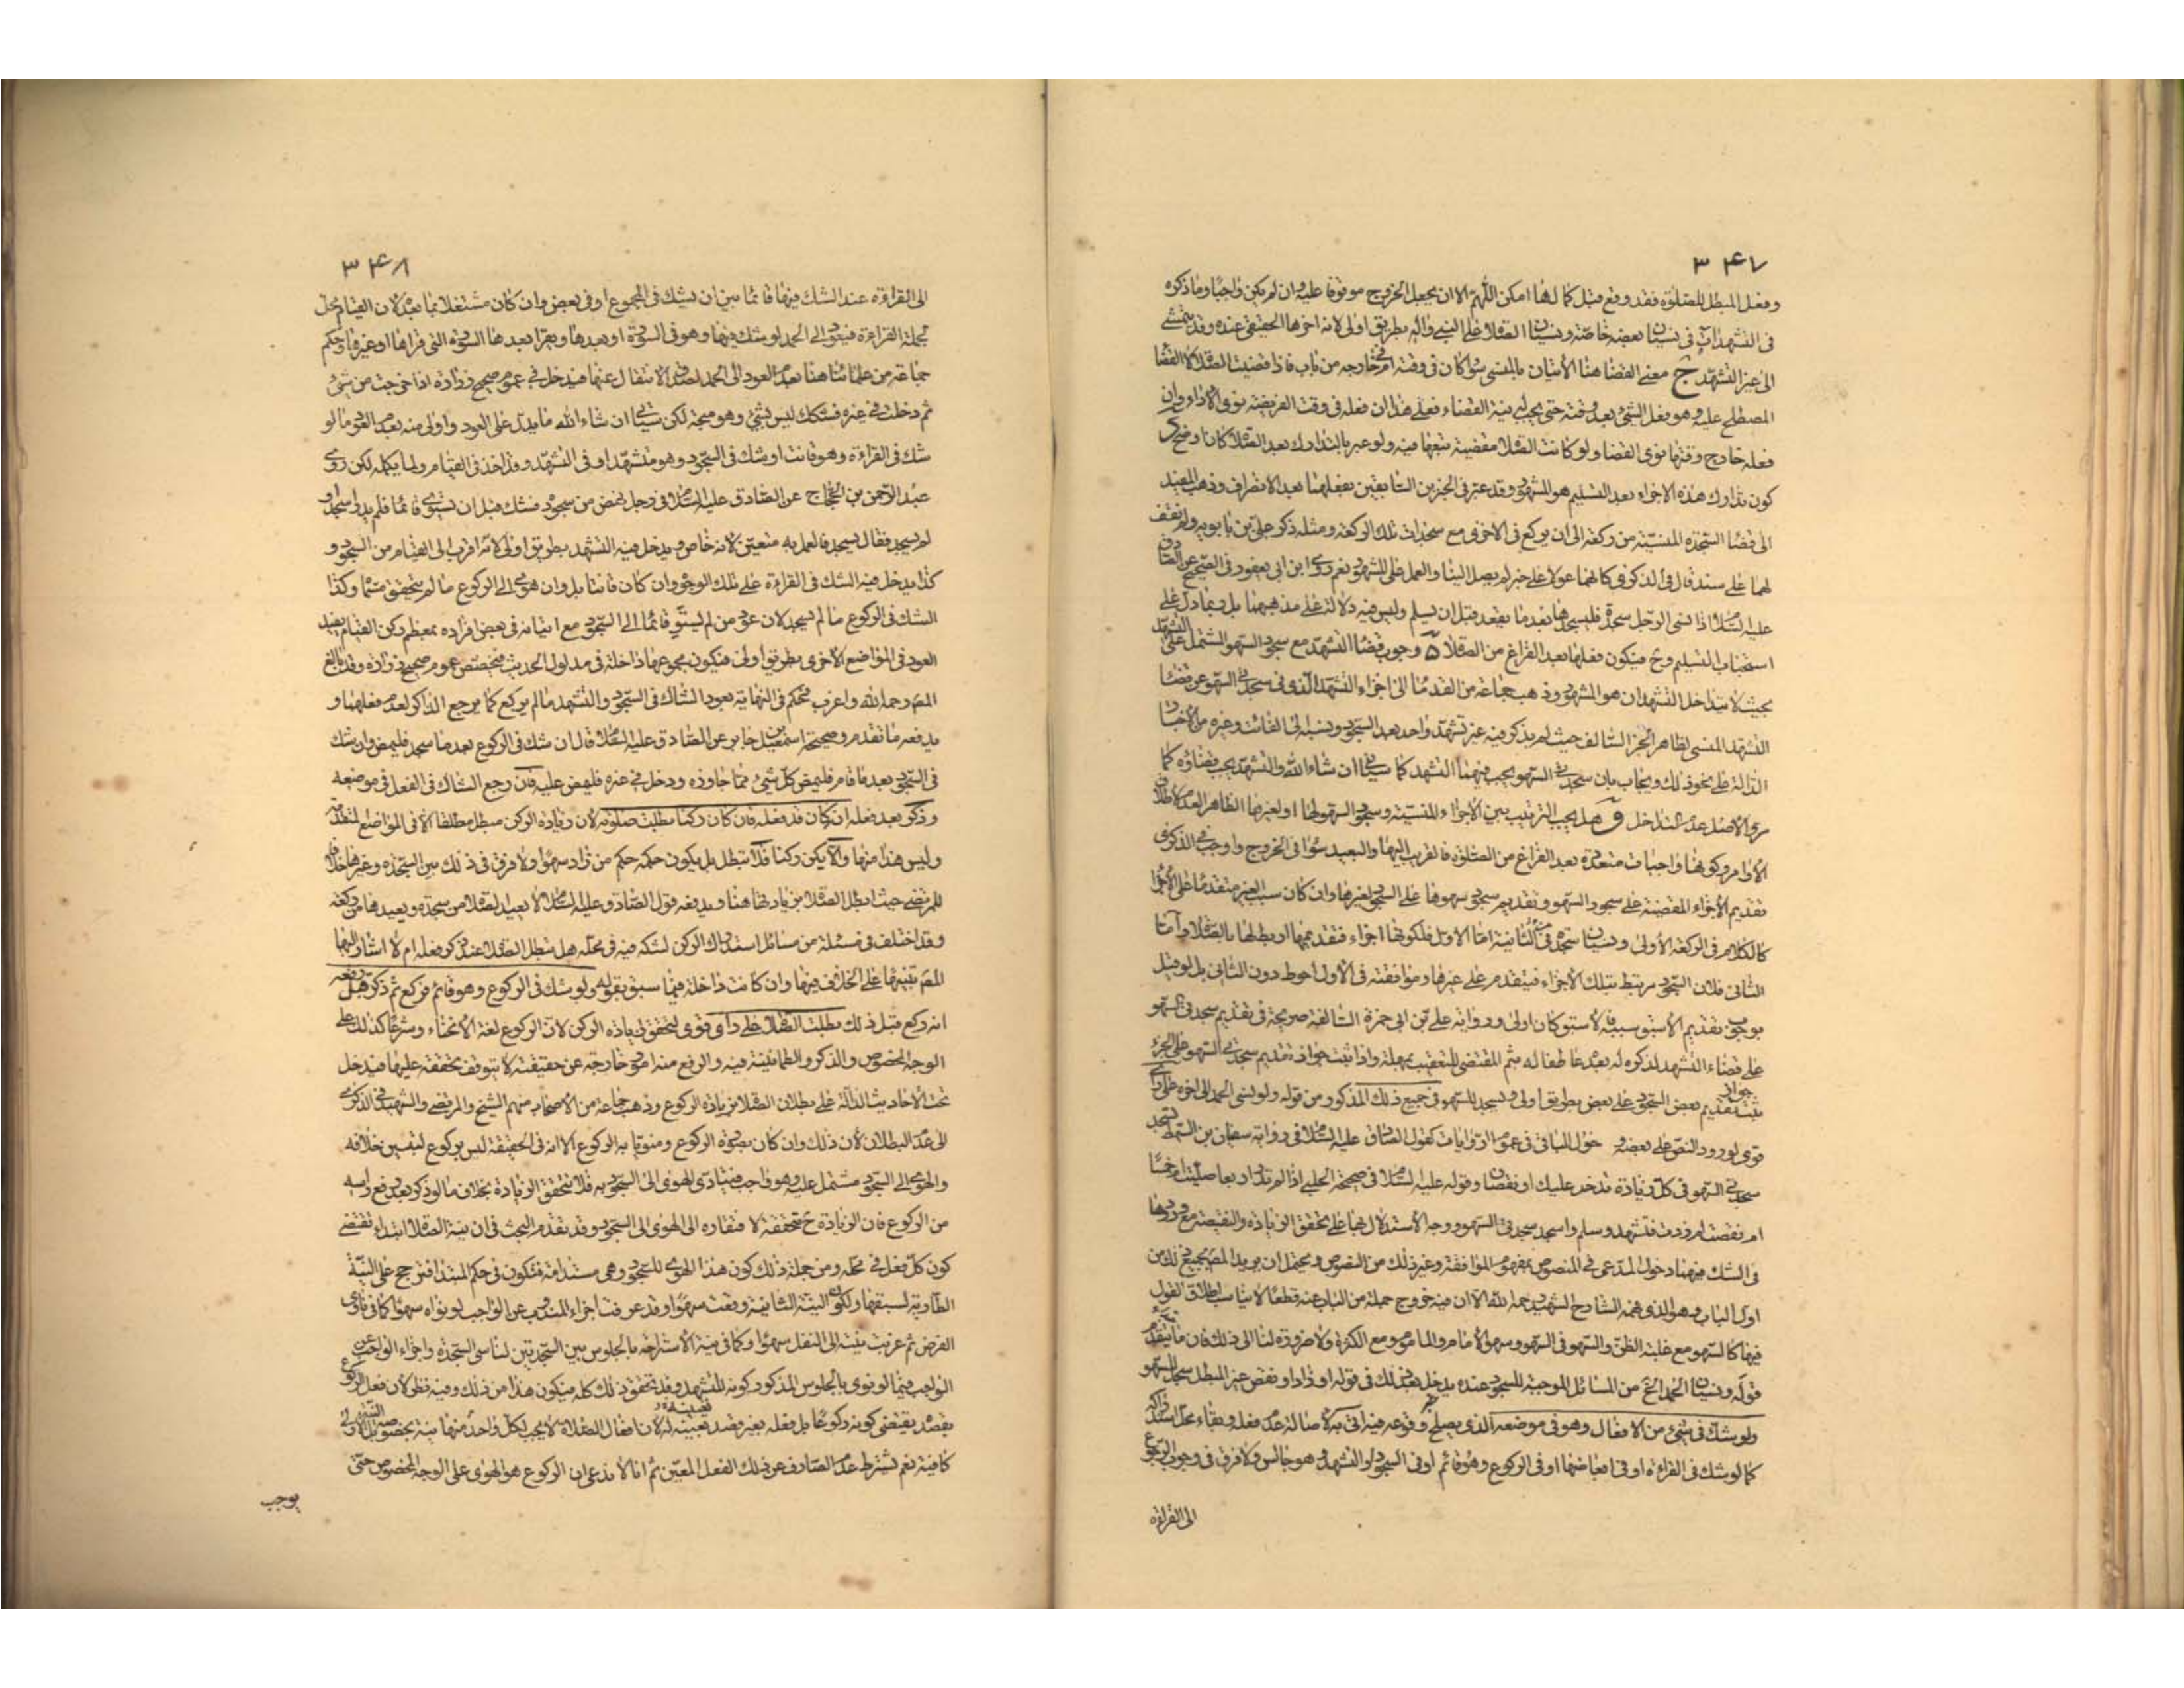 ۳۴۷
وفعل المبطل للصلوة فقد وقع قبل كمالها امكن اللهم الا ان يجعل الخروج موقوفا عليه وان لم يكن واجبا وما ذكره
فى التشهد ات فى نسيان بعضه خاصة ونسيان الصلاة على النبي واله بطريق اولى لانه اخرها الحقيقي عنده وقد يتمشى
الى غير التشهد ج معنى القضا هنا الاتيان بالمنسى سواكان فى وقته ام خارجه من باب فاذا قضيت الصلاة لا القضا
المصطلح عليه وهو فعل الشئ بعد وقته حتى يجب نية القضاء فعلى هذا ان فعله فى وقت الفريضة نوى الاداء وان
فعله خارج وقتها نوى القضا ولو كانت الصلاة مقضية تبعها فيه ولو عبر بالتدارك بعد الصلاة كان اوضح
كون تدارك هذه الاجزاء بعد التسليم هو المشهور وقد عرف الخبرين السابقين بفعلهما بعد الانصراف وذهب المفيد
الى قضا السجدة المنسية من ركعة الى ان يركع فى الاخرى مع سجدات تلك الركعة ومثله ذكر على بن بابويه ولم نقف
لهما على سند قال فى الذكرى كانهما عولا على خبر لم يصل الينا والعمل على المشهور نعم روى ابن ابى يعفور فى الصحيح عن الصادق
عليه السلام اذا نسى الرجل سجدة فليسجدها بعد ما يقعد قبل ان يسلم وليس فيه دلالة على مذهبهما بل ربما دل على
استحباب التسليم وح فيكون فعلها بعد الفراغ من الصلاة وجوب قضا التشهد مع سجود السهو المشتمل على التشهد
بحيث لا يتداخل التشهدان هو المشهور وذهب جماعة من القدما الى اجزاء التشهد الذى فى سجدتى السهو عن قضا
التشهد المنسى لظاهر الخبر السالف حيث لم يذكر فيه غير تشهد واحد بعد السجود ونسبه الى الفائت وغيره من الاخبار
الدالة على نحو ذلك ويجاب بان سجدتى السهو يجب فيهما التشهد كما سياتى ان شاء الله والتشهد يجب قضاؤه كما
مر والاصل عدم التداخل وهل يجب الترتيب بين الاجزاء المنسية وسجود السهو لها اولغيرها الظاهر العدم لاطلاق
الاوامر وكونها واجبات متعددة بعد الفراغ من الصلوة فالقريب اليها والبعيد سوا فى الخروج واوجب فى الذكرى
تقديم الاجزاء المقضية على سجود السهو وتقديم سجود سهوها على السجود لغيرها وان كان سبب الغير متقدما على الاجزا
كالكلام فى الركعة الاولى ونسيان سجدة فى الثانية اما الاول فلكونها اجزاء فتقديمها اربط لها بالصلاة واما
الثانى فلان السجود مرتبط بتلك الاجزاء فيتقدم على غيرها وموافقته فى الاول احوط دون الثانى بل لو قيل
بوجوب تقديم الاسبق سببه فالاسبق كان اولى ورواية على بن ابى حمزة السالفة صريحة فى تقديم سجدتى السهو
على قضاء التشهد لذكره له بعد عاطفا له بثم المقتضى للتعقيب بمهلة واذا ثبت جواز تقديم سجدتى السهو على الجزء
ثبت جواز تقديم بعض السجود على بعض بطريق اولى ويسجد للسهو فى جميع ذلك المذكور من قوله ولو نسى الحمد الى اخره على راى
قوى لورود النص على بعضه ودخول الباقى فى عموم الروايات كقول الصادق عليه السلام فى رواية سفيان بن السمط تسجد
سجدتى السهو فى كل زيادة تدخل عليك او نقصان وقوله عليه السلام فى صحيحة الحلبى اذا لم تدر اربعا صليت ام خمسا
ام نقصت ام زدت فتشهد وسلم واسجد سجدتى السهو ووجه الاستدلال بها على تحقق الزيادة والنقيصة مع ورودها
فى الشك فيهما دخول المدعى فى المنصوص بمفهوم الموافقة وغير ذلك من النصوص ويحتمل ان يريد المصـ بجميع ذلك من
اول الباب وهو الذى فهمه الشارح الشهيد رحمه الله الا ان فيه خروج جملة من الباب عنه قطعا لا يناسب اطلاق القول
فيها كالسهو مع غلبة الظن والسهو فى السهو وسهو الامام والماموم ومع الكثرة ولا ضرورة لنا الى ذلك فان ما تقدم
قوله ونسيان الحمد الخ من المسائل الموجبة للسجود عنده يدخل بعد ذلك فى قوله او زاد او نقص غير المبطل سجد للسهو
ولو شك فى شئ من الافعال وهو فى موضعه الذى يصلح وقوعه فيه اتى به لاصالة عدم فعله وبقاء محل استدراكه
كما لو شك فى القراءة او فى ابعاضها او فى الركوع وهو قائم او فى السجود او التشهد وهو جالس ولا فرق فى وجوب الرجوع
الى القراءة
۳۴۸
الى القراءة عند الشك فيها قائما بين ان يشك فى المجموع او فى بعض وان كان مشتغلا بما بعد لان القيام محل
لجملة القراءة فيعود الى الحمد لو شك فيها وهو فى السورة او بعدها ويقرا بعدها السورة التى قراها او غيرها وحكم
جماعة من علمائنا هنا بعدم العود الى الحمد لصدق الانتقال عنها فيدخل فى عموم صحيح زرارة اذا خرجت من شئ
ثم دخلت فى غيره فشكك ليس بشئ وهو متجه لكن سياتى ان شاء الله ما يدل على العود واولى منه بعدم العود ما لو
شك فى القراءة وهو قانت او شك فى السجود وهو متشهد او فى التشهد وقد اخذ فى القيام ولما يكمله لكن روى
عبد الرحمن بن الحجاج عن الصادق عليه السلام فى رجل نهض من سجود فشك قبل ان يستوى قائما فلم يدر اسجد او
لم يسجد فقال يسجد فالعمل به متعين لانه خاص ويدخل فيه التشهد بطريق اولى لانه اقرب الى القيام من السجود و
كذا يدخل فيه الشك فى القراءة على تلك الوجوه وان كان قانتا بل وان هوى الى الركوع ما لم يتحقق مسما وكذا
الشك فى الركوع ما لم يسجد لان عود من لم يستو قائما الى السجود مع اتيانه فى بعض افراده بمعظم ركن القيام يفيد
العود فى المواضع الاخرى بطريق اولى فيكون مجموعها داخلة فى مدلول الحديث فيخصص عموم صحيح زرارة وقد بالغ
المصـ رحمه الله واغرب فحكم فى النهاية بعود الشاك فى السجود والتشهد ما لم يركع كما يرجع الذاكر لعدم فعلهما و
يدفعه ما تقدم وصحيحة اسمعيل بن جابر عن الصادق عليه السلام قال ان شك فى الركوع بعد ما سجد فليمض وان شك
فى السجود بعد ما قام فليمض كل شئ مما جاوزه ودخل فى غيره فليمض عليه فان رجع الشاك فى الفعل فى موضعه
وذكر بعد فعله ان كان قد فعله فان كان ركنا بطلت صلوته لان زيادة الركن مبطل مطلقا الا فى المواضع المتقدمة
وليس هذا منها والا يكن ركنا فلا تبطل بل يكون حكمه حكم من زاد سهوا ولا فرق فى ذلك بين السجدة وغيرها خلافا
للمرتضى حيث ابطل الصلاة بزيادتها هنا ويدفعه قول الصادق عليه السلام لا يعيد الصلاة من سجدة ويعيدها من ركعة
وقد اختلف فى مسئلة من مسائل استدراك الركن لشكه فيه فى محله هل تبطل الصلاة عند ذكر فعله ام لا اشار اليها
المصـ تنبيها على الخلاف فيها وان كانت داخلة فيما سبق بقوله ولو شك فى الركوع وهو قائم فركع ثم ذكر قبل رفعه
انه ركع قبل ذلك بطلت الصلاة على راى قوى لتحقق زيادة الركن لان الركوع لغة الانحناء وشرعا كذلك على
الوجه المخصوص والذكر والطمانينة فيه والرفع منه امور خارجة عن حقيقته لا يتوقف تحققه عليها فيدخل
تحت الاحاديث الدالة على بطلان الصلاة بزيادة الركوع وذهب جماعة من الاصحاب منهم الشيخ والمرتضى والشهيد فى الذكرى
الى عدم البطلان لان ذلك وان كان بصورة الركوع ومنويا به الركوع الا انه فى الحقيقة ليس بركوع لتبين خلافه
والهوى الى السجود مشتمل عليه وهو واجب فيتادى الهوى الى السجود به فلا تتحقق الزيادة بخلاف ما لو ذكر بعد رفع راسه
من الركوع فان الزيادة ح متحققة لافتقاره الى الهوى الى السجود وقد تقدم البحث فى ان نية الصلاة ابتداء تقتضى
كون كل فعل فى محله ومن جملة ذلك كون هذا الهوى للسجود وهى مستدامة فتكون فى حكم المبتداة فترجح على النية
الطارية لسبقها ولكون النية الثانية وقعت سهوا وقد عرفت اجزاء المندوب عن الواجب لو نواه سهوا كما فى ناوى
الفرض ثم عزبت نيته الى النفل سهوا وكما فى نية الاستراحة بالجلوس بين السجدتين لناسى السجدة واجزاء الواجب عن
الواجب فيما لو نوى بالجلوس المذكور كونه للتشهد وقد تحقق ذلك كله فيكون هذا من ذلك وفيه نظر لان فعل الركوع
بقصد يقتضى كونه ركوعا بل فعله بغير قصد تعيينه له لان افعال الصلاة لا يجب لكل واحد منها نية بخصوصه بل الاولى
كافية نعم يشترط عدم الصارف عن ذلك الفعل المعين ثم انا لا ندعى ان الركوع هو الهوى على الوجه المخصوص حتى
يوجب